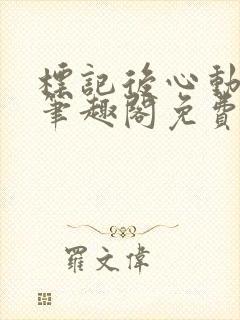 標記後心動
筆趣閣免費
羅文偉